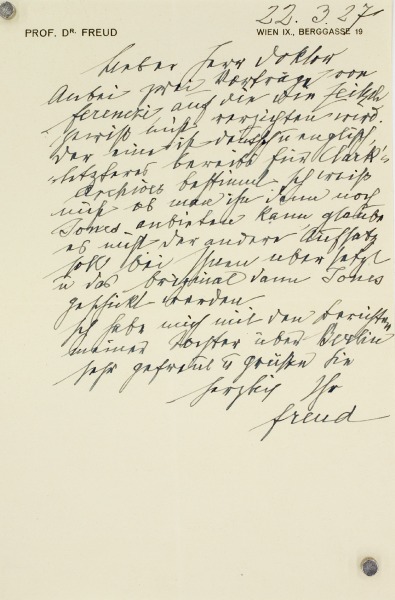 22. 3. 27
PROF. DR. FREUD
WIEN IX., BERGGASSE 19
Lieber Herr Doktor
Anbei zwei Vorträge von
Ferenczi auf die die Zeitschr
gewiß nicht verzichten wird.
Der eine ist deutsch u englisch
letzteres bereits für Clark's
Archives bestimmt. Ich weiß
nicht ob man ihn dann noch
Jones anbieten kann, glaube
es nicht der andere Aufsatz
soll bei Ihnen übersetzt
u das Original dann Jones
geschickt werden
Ich habe mich mit den Berichten
meiner Tochter über Berlin
sehr gefreut u grüße Sie
herzlich Ihr
Freud